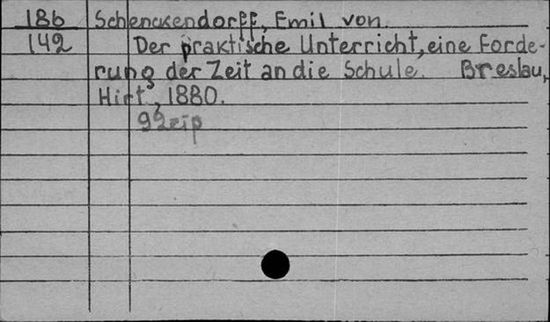 186 Schenckendorff, Emil von.
142 Der praktische Unterricht, eine Forde-
rung der Zeit an die Schule. Breslau,
Hirt, 1880.